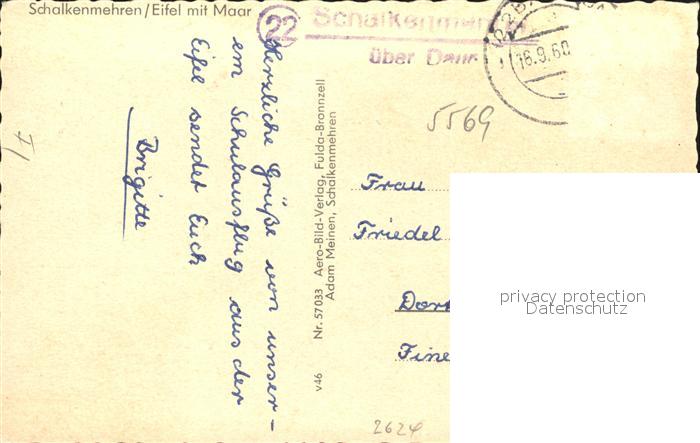 Schalkenmehren/Eifel mit Maar
22
Schalkenmehren
über Daun
16.9.60
5569
Herzliche Grüße von unser-
em Schulausflug aus der
Eifel sendet Euch
Brigitte
Nr. 57033 Aero-Bild-Verlag, Fulda-Bronnzell
Adam Meinen, Schalkenmehren
v46
Frau
Friedel
privacy protection
Datenschutz
2624